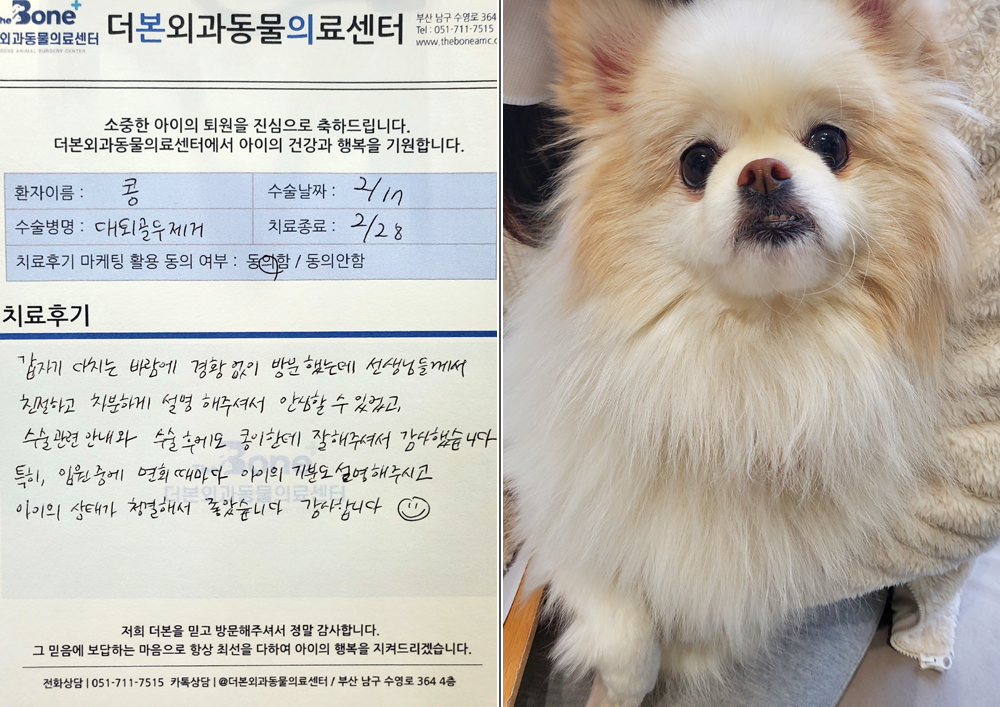 The Bone+
더본외과동물의료센터
BONE ANIMAL SURGERY CENTER
더본외과동물의료센터
부산 남구 수영로 364
Tel : 051-711-7515
www.theboneamc.c
소중한 아이의 퇴원을 진심으로 축하드립니다.
더본외과동물의료센터에서 아이의 건강과 행복을 기원합니다.
환자이름 : 콩 수술날짜 : 2/17
수술병명 : 대퇴골두제거 치료종료 : 2/28
치료후기 마케팅 활용 동의 여부 : 동의함 / 동의안함
치료후기
갑자기 다치는 바람에 경황 없이 방문했는데 선생님들께서
친절하고 차분하게 설명 해주셔서 안심할 수 있었고,
수술관련 안내와 수술 후에도 콩이한테 잘해주셔서 감사했습니다
특히, 입원 중에 면회 때마다 아이의 기분도 설명해주시고
아이의 상태가 청결해서 좋았습니다 감사합니다
The Bone+
더본외과동물의료센터
저희 더본을 믿고 방문해주셔서 정말 감사합니다.
그 믿음에 보답하는 마음으로 항상 최선을 다하여 아이의 행복을 지켜드리겠습니다.
전화상담 | 051-711-7515 카톡상담 | @더본외과동물의료센터 / 부산 남구 수영로 364 4층